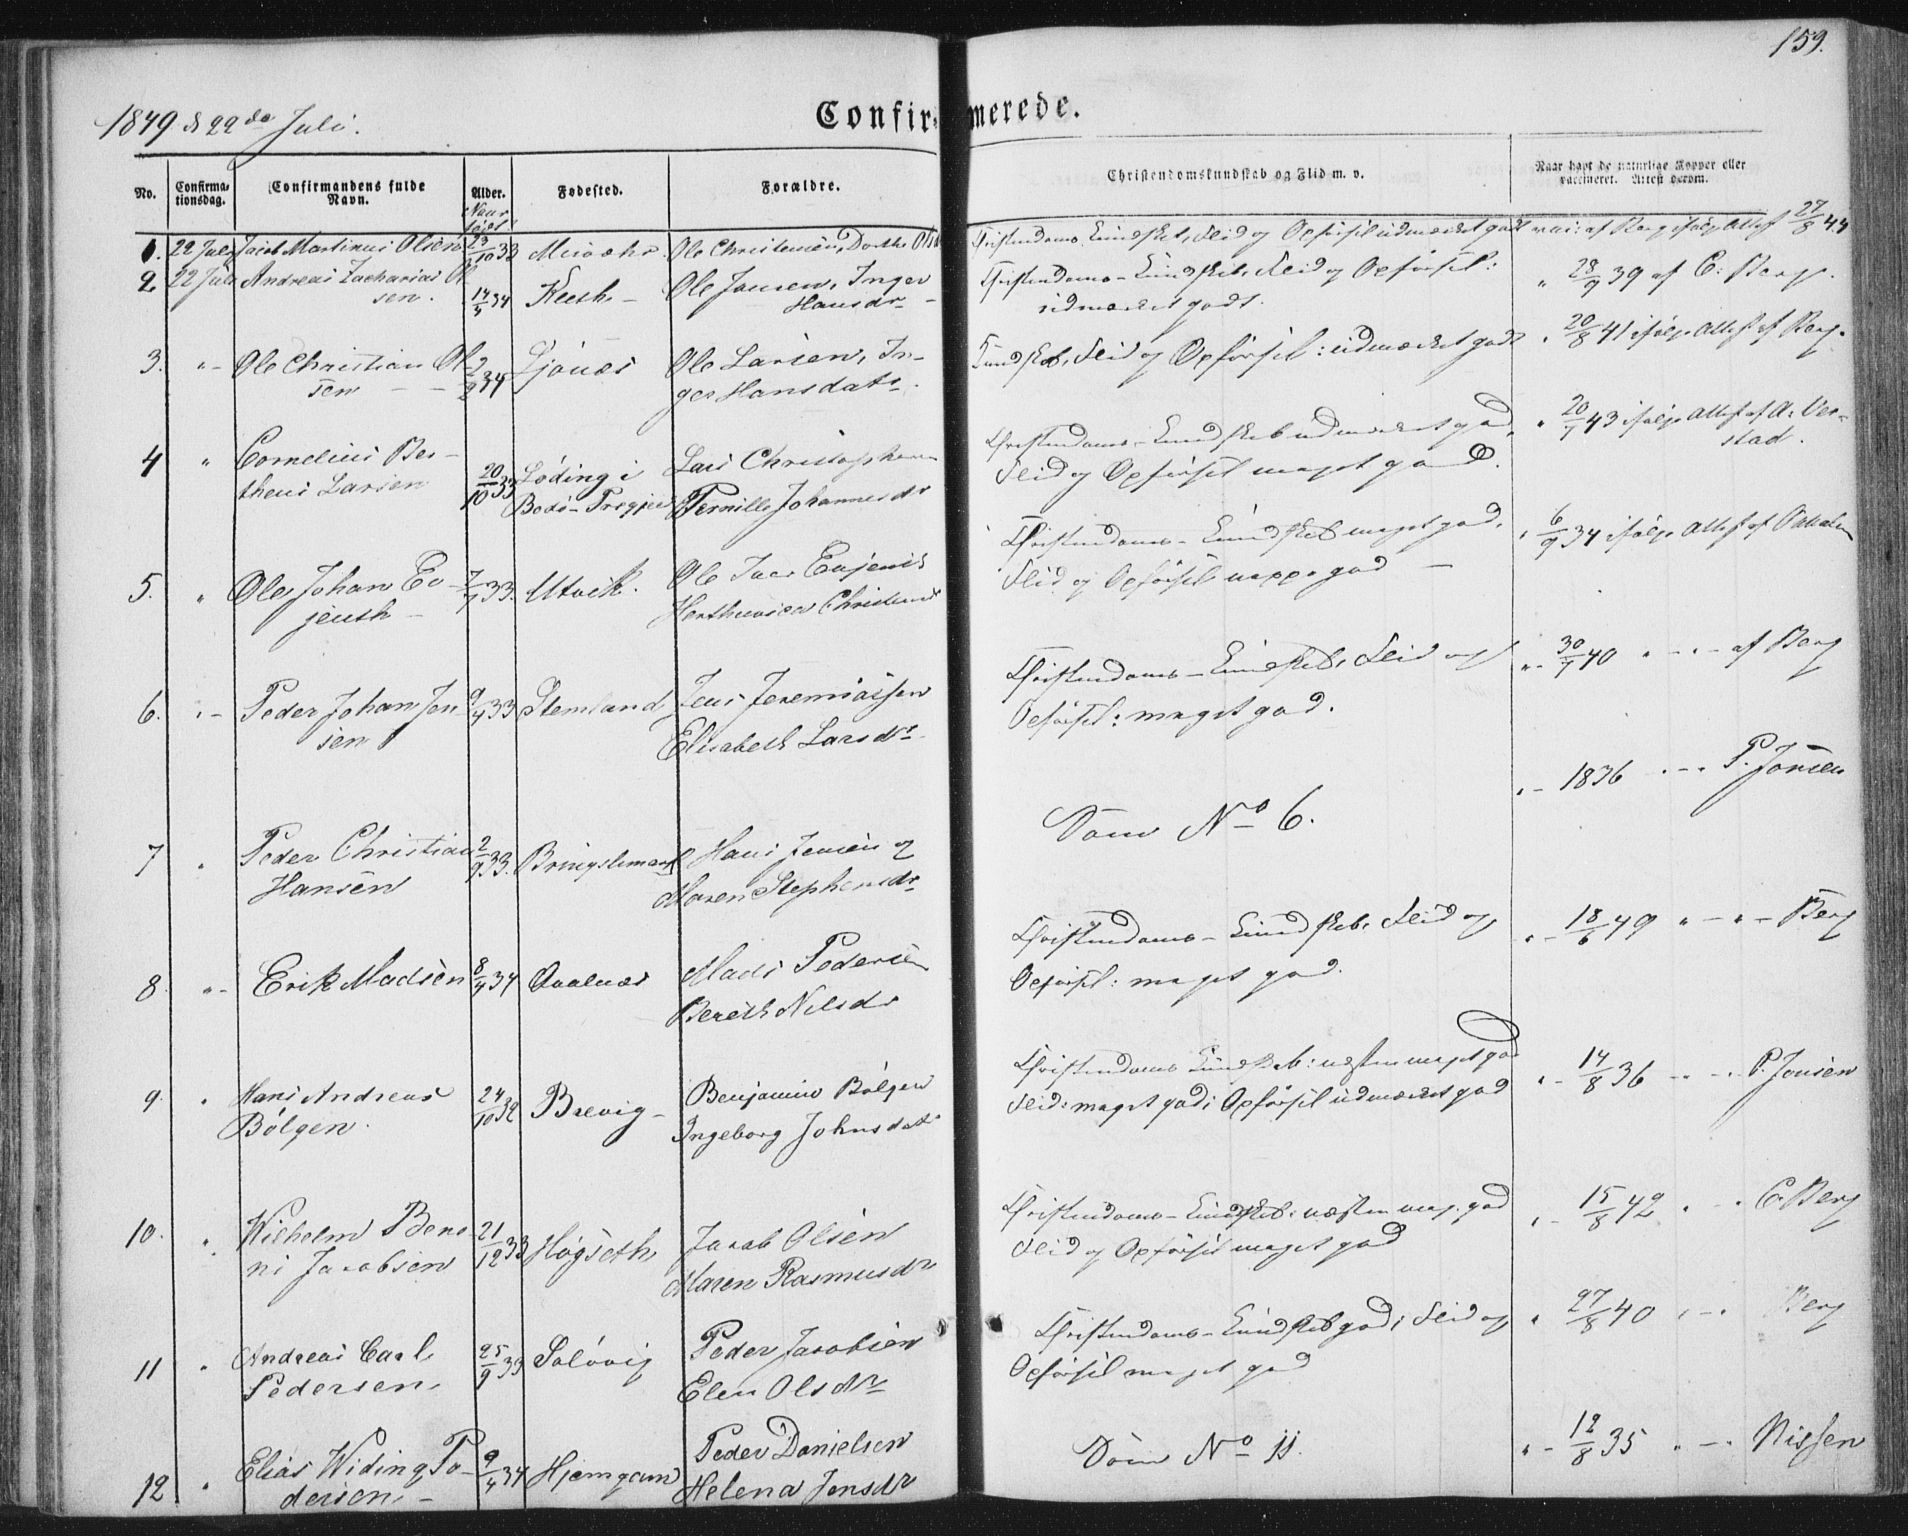 159.
1849 d 22de Juli.
Confirmerede.
No.
Confirma-
tionsdag.
Confirmandens fulde
Navn.
Alder.
Naar
født
Fødested.
Forældre.
Christendomskundskab og Flid m. v.
Naar havt de naturlige Kopper eller
vaccineret. Attest derom.
1. 22 Juli Jacob Martinus Olsen 23/10 33 Ole Christensen, Dorthe
Christendoms Kundskab, Flid og Opførsel udmærket godt vac: af Berg ifølge Attest 27/8 44
2. 22 Juli Andreas Zacharias Ol-
sen. 14/4 34 Ole Jansen, Inger
Hansdr
Christendoms-Kundskab, Flid og Opførsel:
udmærket godt.
" 28/9 39 af C: Berg.
3. "- Ole Christian Ol-
sen 2/2 34 Ljønæs Ole Larsen, In-
ger Hansdatr.
Kundskab, Flid og Opførsel: udmærket godt " 20/8 41 ifølge Attest af Berg.
4 " Cornelius Ber-
theus Larsen 20/10 33 Løding i
Bodø- Præstegjeld Lars Christophersen
Pernille Johannesdr
Christendoms-Kundskab udmærket god,
Flid og Opførsel meget god.
" 20/7 43 ifølge Attest af A: Ver-
stad.
5. " Ole Johan Ev-
jenth 7/7 33. Utvik. Ole Iver Evjenth
Christens
Christendoms-Kundskab meget god,
Flid og Opførsel god
" 6/9 34 ifølge Attest af
6. "- Peder Johan Jen-
sen 9/4 33 Stemland Jens Jeremiassen
Elisabeth Larsdr.
Christendoms-Kundskab, Flid og
Opførsel: meget god.
"- 30/7 40 " - "- af Berg
7 " Peder Christian
Hansen 2/9 33. Hans Jensen og
Maren Stephensdr
Som No 6.
"- 1836 "-- P. Jonsen
8. "- Erik Madsen 8/4 34 Qvalnæs Mads Pedersen
Bereth Nilsdr
Christendoms-Kundskab, Flid og
Opførsel: meget god.
"- 18/6 49 " - " - Berg
9. " Hans Andreas
Bølgen. 24/10 32 Brevig- Benjamin Bølgen
Ingeborg Johnsdatr
Christendoms Kundskab: næsten meget god
Flid: meget god; Opførsel udmærket god
"- 14/8 36 "- -- P. Jonsen
10. " Wilhelm Beno-
ni Jacobsen 21/12 33 Høgseth, Jacob Olsen
Maren Rasmusdr
Christendoms-Kundskab: næsten meg. god
Flid og Opførsel meget god
"- 15/8 42 " - " C. Berg
11 " Andreas Carl
Pedersen, 25/9 33 Soløvig Peder Jacobsen
Elen Olsdr
Christendoms-Kundskab god; Flid og
Opførsel meget god
" 27/8 40 " -" Berg
12 " Elias Widing Pe-
dersen, - 9/4 34 Hjemgam Peder Danielsen
Helena Jensdr
Som No 11.
"- 12/8 35 " -- Nissen